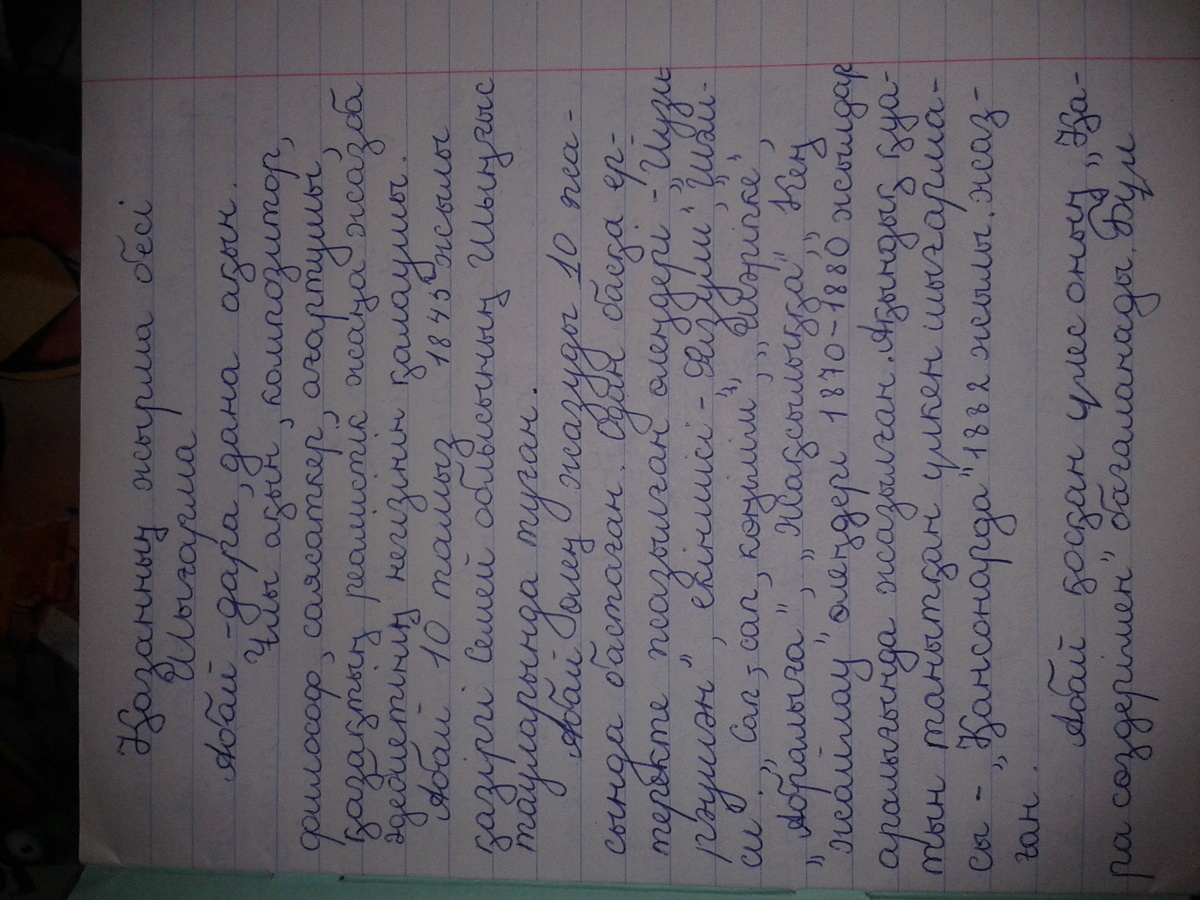 Қазанның жырма бесі
Шығарма
Абай - дара, дана ақын.
Ұлы ақын, композитор,
философ, саясаткер, ағартушы,
қазақтың реалистік жаңа жазба
әдебиетінің негізін қалаушы.
Абай 10 тамыз 1845 жылы
қазіргі Семей облысының Шыңғыс
тауларында туған.
Абай өлең жазуды 10 жа-
сында бастаған. Одан басқа ер-
теректе жазылған өлеңдері - „Йузи
рәушән", екіншісі - „Физули", „Шәм-
си". „Сап, сап, көңілім", „Шәріпке",
„Абралыға", „Жақсылыққа", „Кең
жайлау" өлеңдері 1870-1880 жылдар
аралығында жазылған. Ақындық қуа-
тын танытқан үлкен шығарма-
сы - „Қансонарда" 1882 жылы жаз-
ған.
Абай қосқан үлес оның „Қа-
ра сөздерімен" бағаланады. Бұл